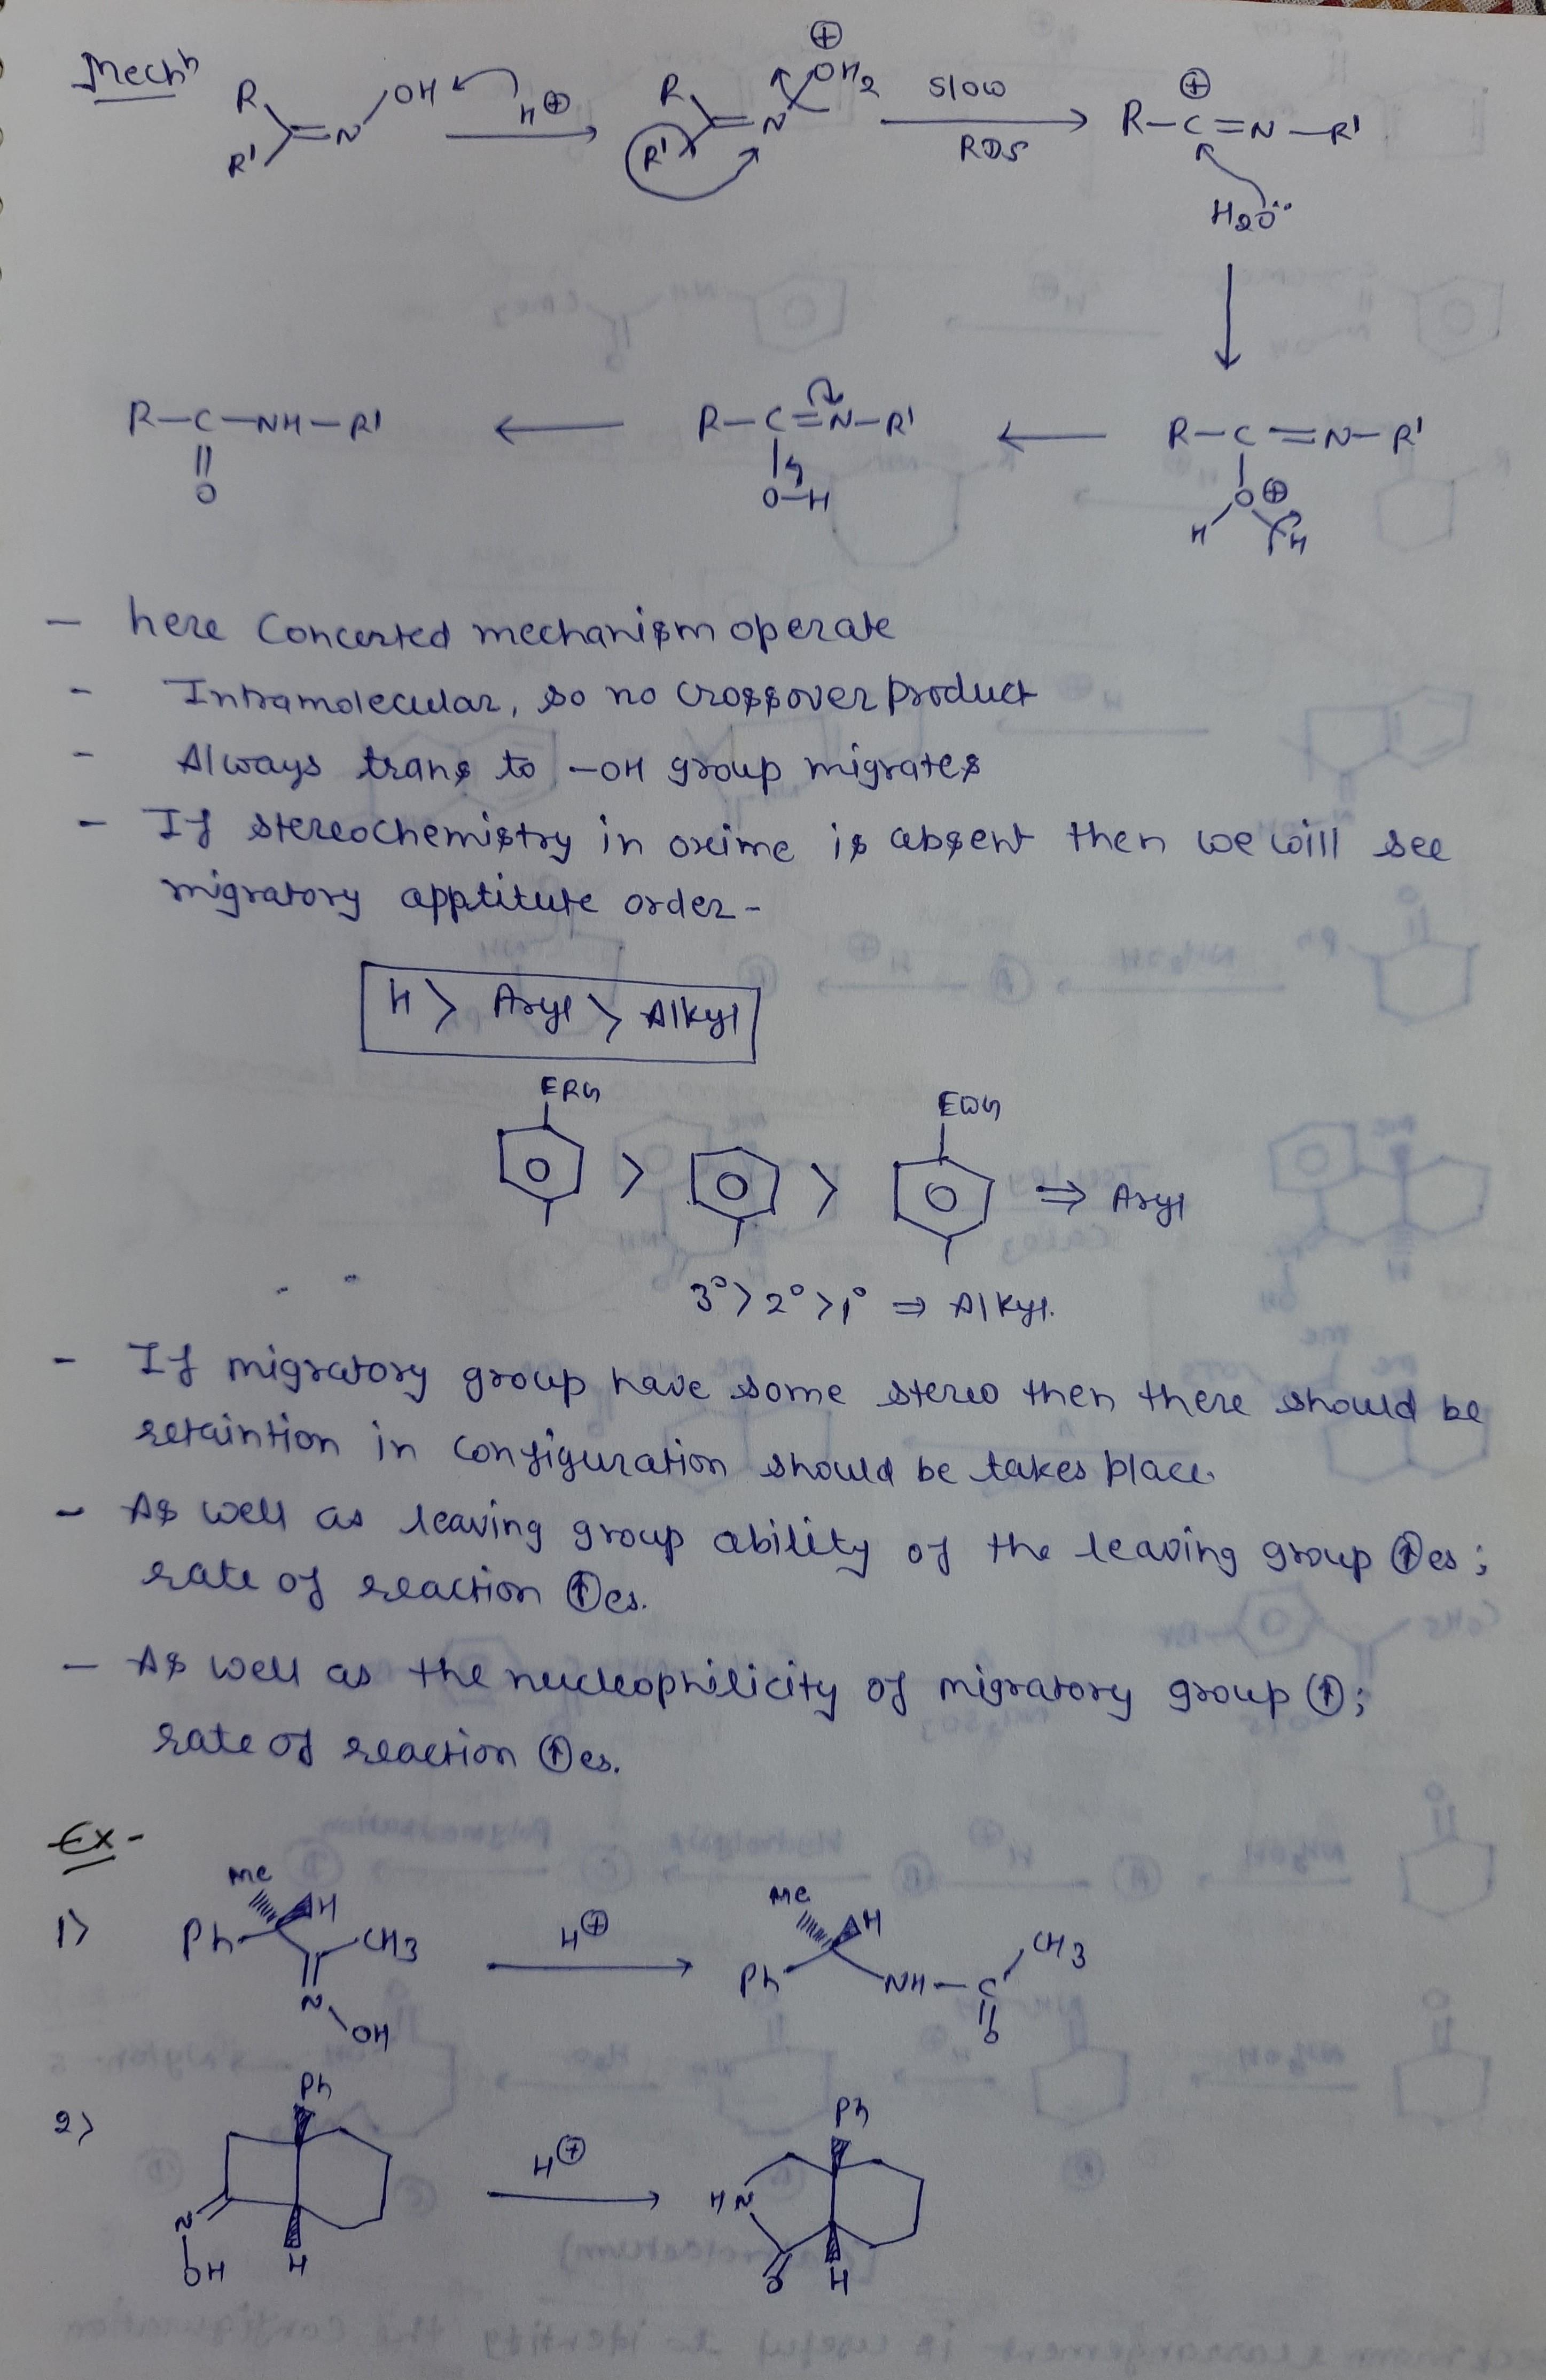 Mechⁿ
R R' =N OH H⊕ → R R' =N ⊕OH2 slow RDS → R-C⊕=N-R'
H2Ö
R-C-NH-R' ← R-C=N-R' ← R-C=N-R'
O O-H O⊕
H H
- here Concerted mechanism operate
- Intramolecular, so no crossover product
- Always trans to -OH group migrates
- If stereochemistry in oxime is absent then we will see
migratory apptitute order-
H > Aryl > Alkyl
ERG EWG
> > ⇒ Aryl
3° > 2° > 1° ⇒ Alkyl.
- If migratory group have some stereo then there should be
retaintion in configuration should be takes place.
- As well as leaving group ability of the leaving group ↑es;
rate of reaction ↑es.
- As well as the nucleophilicity of migratory group ↑;
rate of reaction ↑es.
Ex-
1) Me H Ph CH3 N OH H⊕ → Me H Ph NH-C CH3 O
2) Ph N OH H H⊕ → Ph HN O H